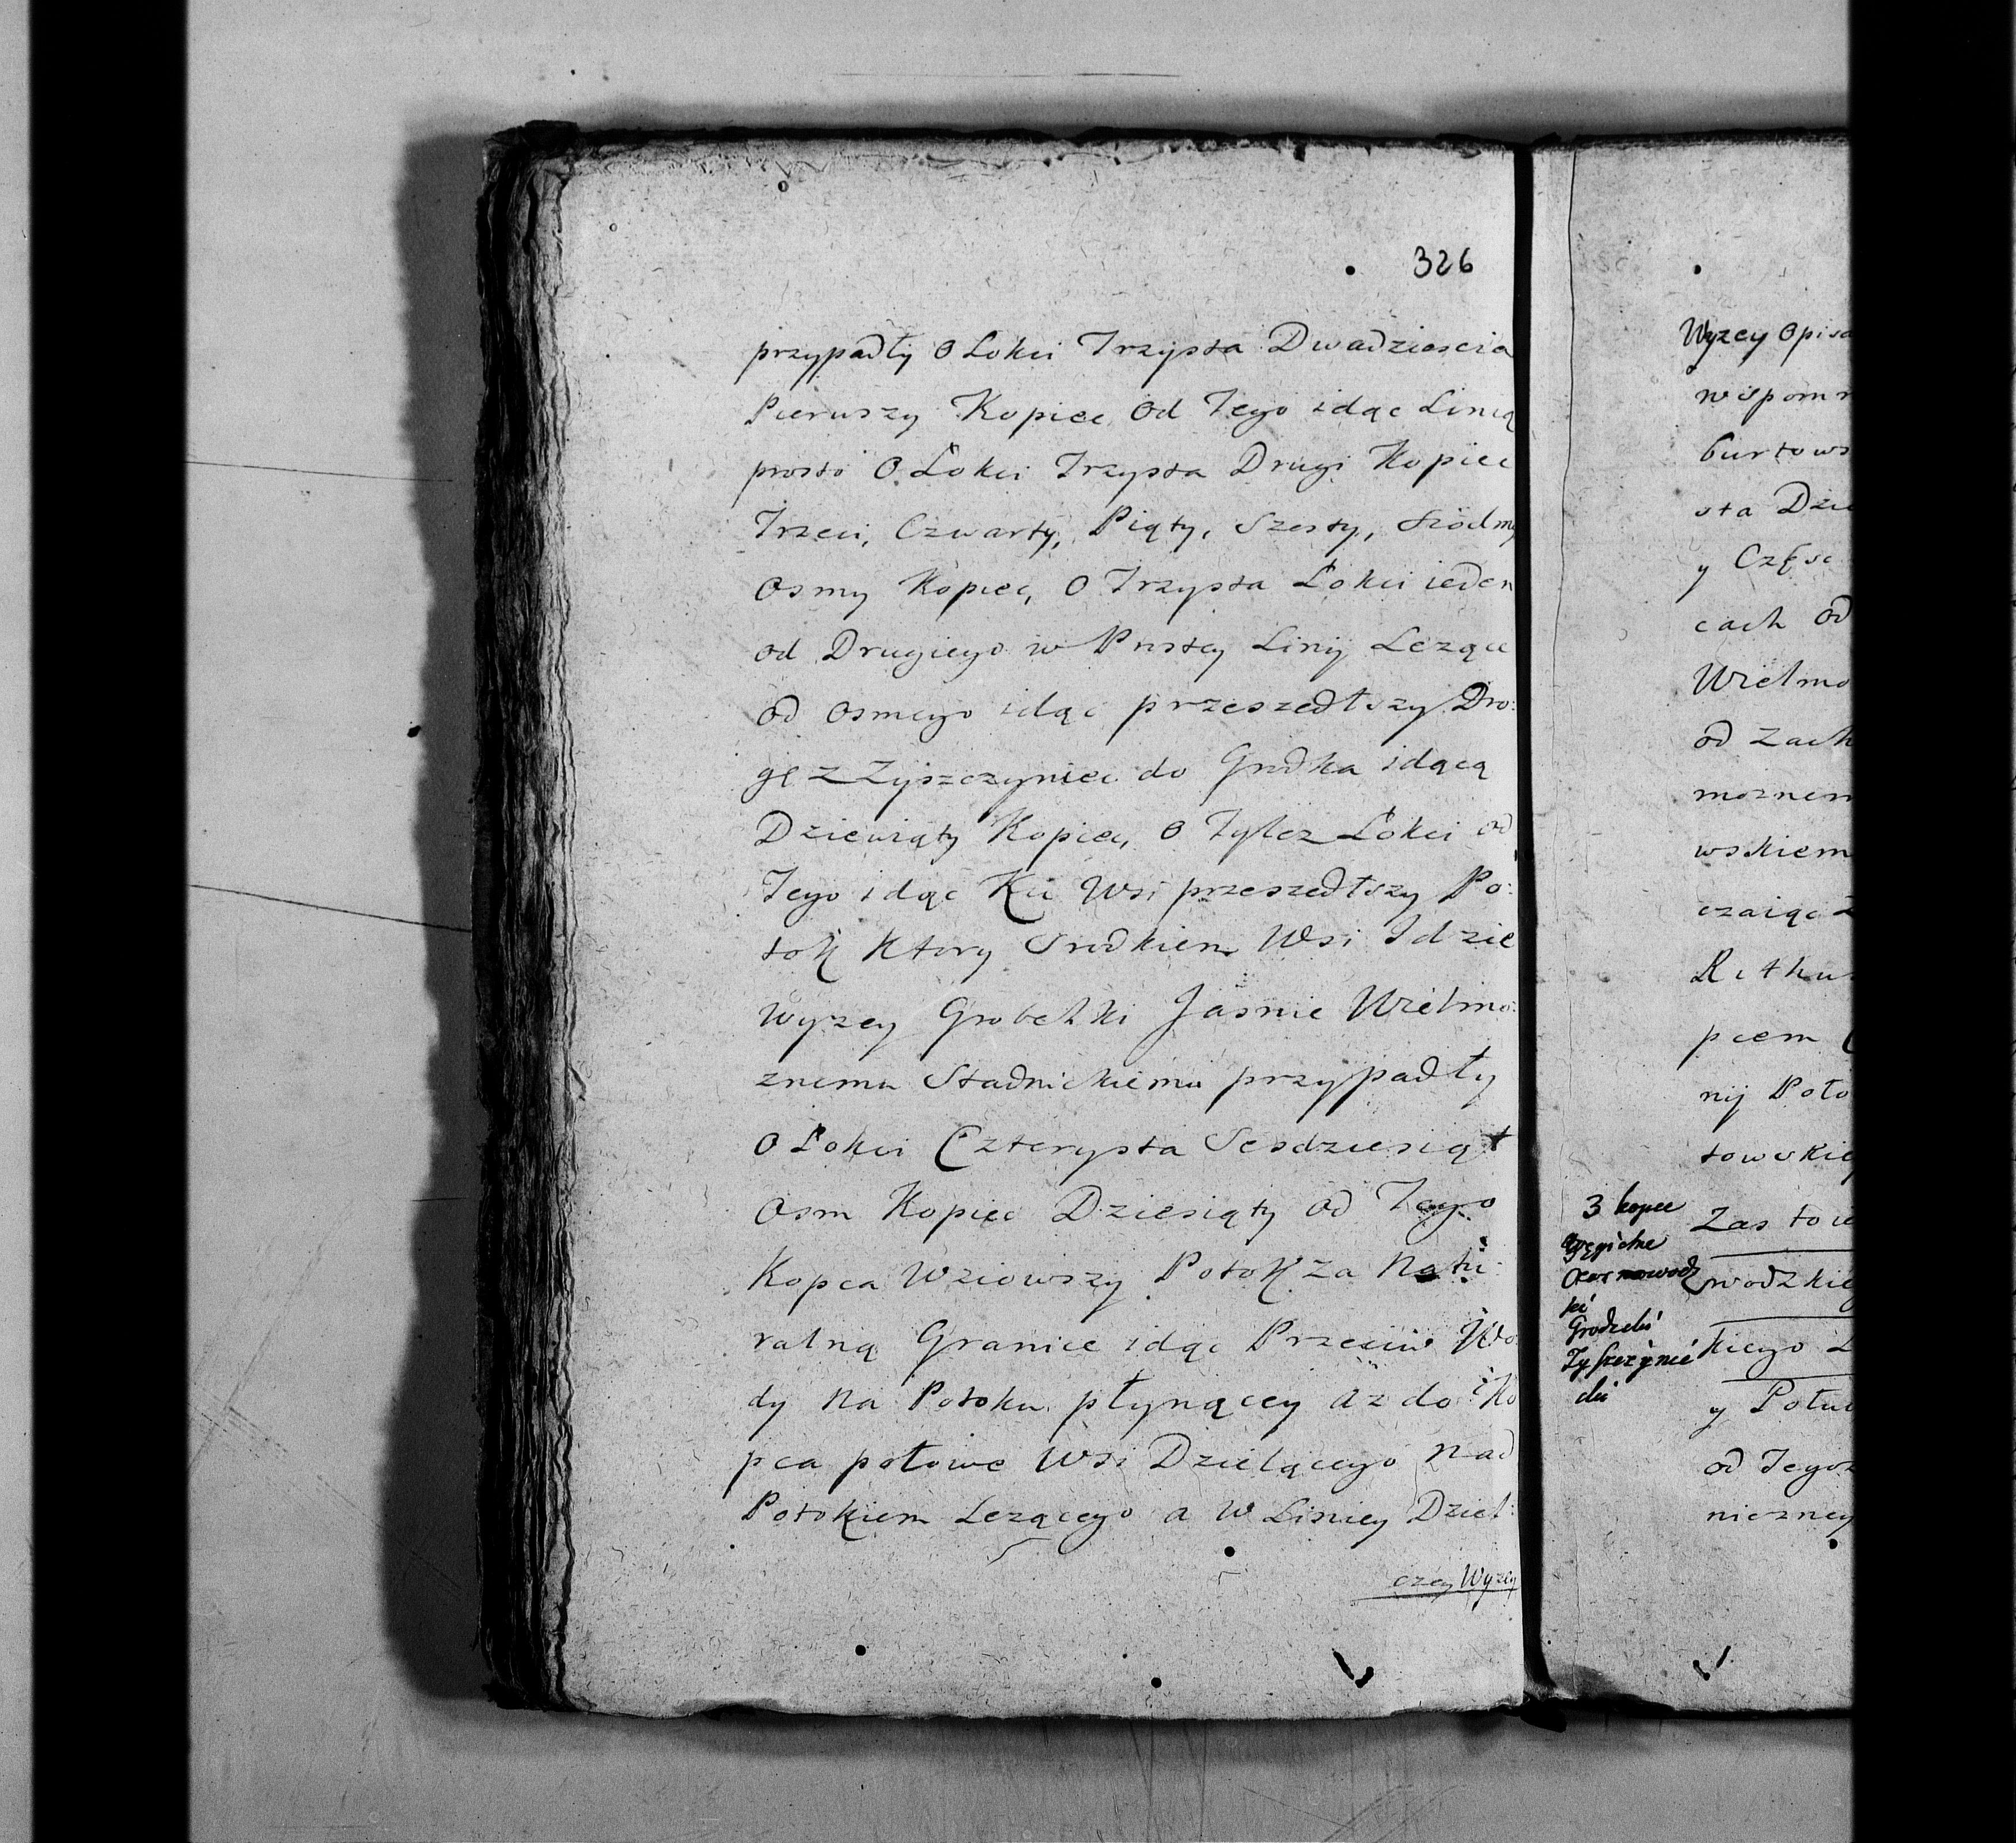 326
przypadły o Łokci Trzysta Dwadziescia
Pierwszy Kopiec od Tego idąc Linią
prosto o Łokci Trzysta Drugi Kopiec
Trzeci, Czwarty, Piąty, Szesty, Siódmy
Osmy Kopiec, o Trzysta Łokci ieden
od Drugiego w Prostey Linij Lezące
od osmego idąc przeszedłszy Dro:
gę z Zyszczyniec do Grodka idącą
Dziewiąty Kopiec, o Tylez Łokci od
Tego idąc Ku Wsi przeszedłszy Po:
tok Ktory Srodkiem Wsi Idzie
Wyzey Grobelki Jasnie Wielmo:
znemu Stadnickiemu przypadły
o Łokci Czterysta Sesdziesiąt
Osm Kopiec Dziesiąty od Tego
Kopca Wziowszy Potok za Natu:
ralną Granice idąc Przeciw Wo
dy Na Potoku płynącey az do Ko
pca połowe Wsi Dzielącego nad
Potokiem Lezącego a w Liniey Dziel:
czey Wyzey
Wyzey Opisa
wspomn
burtows
sta Dzie
y Częsc
cach od
Wielmo
od Zach
moznem
wskiem
czaiąc
Rithus
pcem
nij Poło
towskie
Zas to ie
wodzkie
kiego L
y Połu
od Tegoz
niczney
3 kopce
Czarnowodz
ki
Grodecki
Zyszczynie
cki